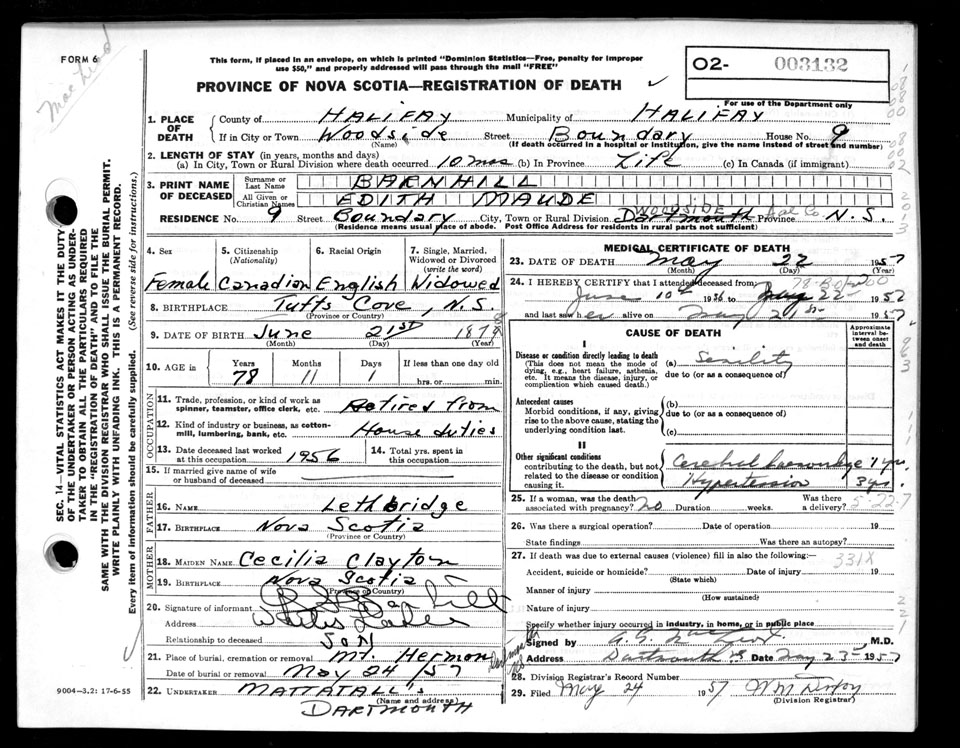 FORM 6
This form, if placed in an envelope, on which is printed "Dominion Statistics—Free, penalty for improper
use $50," and properly addressed will pass through the mail "FREE"
O2- 003132
PROVINCE OF NOVA SCOTIA—REGISTRATION OF DEATH
For use of the Department only
1. PLACE OF DEATH
County of HALIFAX Municipality of HALIFAX
If in City or Town Woodside Street Boundary House No. 9
(Name) (If death occurred in a hospital or institution, give the name instead of street and number)
2. LENGTH OF STAY (in years, months and days)
(a) In City, Town or Rural Division where death occurred 10 mos (b) In Province Life (c) In Canada (if immigrant)
3. PRINT NAME OF DECEASED
Surname or Last Name BARNHILL
All Given or Christian Names EDITH MAUDE
WOODSIDE
RESIDENCE No. 9 Street Boundary City, Town or Rural Division Dartmouth Province N.S.
(Residence means usual place of abode. Post Office Address for residents in rural parts not sufficient)
4. Sex 5. Citizenship (Nationality) 6. Racial Origin 7. Single, Married, Widowed or Divorced (write the word)
Female Canadian English Widowed
8. BIRTHPLACE Tufts Cove, N.S.
(Province or Country)
9. DATE OF BIRTH June 21st
(Month) (Day) (Year)
10. AGE in Years Months Days If less than one day old
78 11 1 hrs. or min.
OCCUPATION
11. Trade, profession, or kind of work as spinner, teamster, office clerk, etc. Retired from
12. Kind of industry or business, as cotton-mill, lumbering, bank, etc. House duties
13. Date deceased last worked at this occupation 1956 14. Total yrs. spent in this occupation
15. If married give name of wife or husband of deceased
FATHER
16. NAME Lethbridge
17. BIRTHPLACE Nova Scotia
(Province or Country)
MOTHER
18. MAIDEN NAME Cecilia Clayton
19. BIRTHPLACE Nova Scotia
(Province or Country)
20. Signature of informant Barnhill
Address
Relationship to deceased SON
21. Place of burial, cremation or removal Mt. Hermon
Date of burial or removal May 24/57
22. UNDERTAKER MATTATALL'S
(Name and address)
DARTMOUTH
9004—3.2: 17-6-55
MEDICAL CERTIFICATE OF DEATH
23. DATE OF DEATH May 22 1957
(Month) (Day) (Year)
24. I HEREBY CERTIFY that I attended deceased from
June 10th 1956 to May 22 1957
and last saw her alive on May 21st 1957
CAUSE OF DEATH
Approximate interval between onset and death
I
Disease or condition directly leading to death (a) Senility
(This does not mean the mode of dying, e.g., heart failure, asthenia, etc. It means the disease, injury, or complication which caused death.)
due to (or as a consequence of)
Antecedent causes (b)
Morbid conditions, if any, giving rise to the above cause, stating the underlying condition last.
due to (or as a consequence of)
(c)
II
Other significant conditions contributing to the death, but not related to the disease or condition causing it.
Cerebral haemorrhage 1 yr.
Hypertension 3 yrs.
25. If a woman, was the death associated with pregnancy? no Duration weeks. Was there a delivery?
26. Was there a surgical operation? Date of operation 19
State findings Was there an autopsy?
27. If death was due to external causes (violence) fill in also the following:— 331X
Accident, suicide or homicide? Date of injury 19
(State which)
Manner of injury
(How sustained)
Nature of injury
Specify whether injury occurred in industry, in home, or in public place
Signed by M.D.
Address Dartmouth NS Date May 23rd 1957
28. Division Registrar's Record Number
29. Filed May 24 1957
(Division Registrar)
SEC. 14—VITAL STATISTICS ACT MAKES IT THE DUTY
OF THE UNDERTAKER OR PERSON ACTING AS UNDER-
TAKER TO OBTAIN ALL THE PARTICULARS REQUIRED
IN THE "REGISTRATION OF DEATH" AND TO FILE THE
SAME WITH THE DIVISION REGISTRAR WHO SHALL ISSUE THE BURIAL PERMIT.
WRITE PLAINLY WITH UNFADING INK. THIS IS A PERMANENT RECORD.
Every item of Information should be carefully supplied. (See reverse side for instructions.)